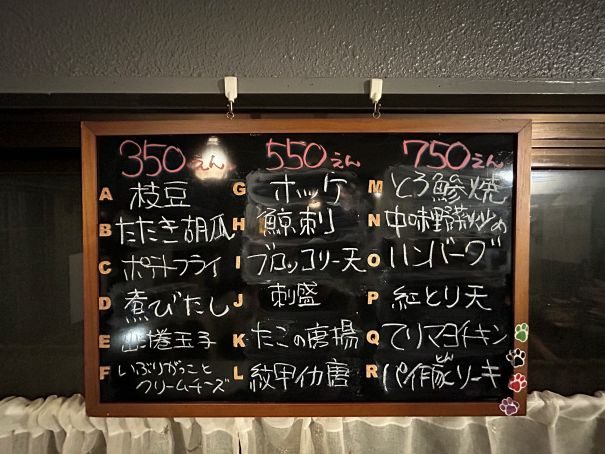 350えん
A 枝豆
B たたき胡瓜
C ポテトフライ
D 煮びたし
E 出し捲玉子
F いぶりがっこと
クリームチーズ
550えん
G ホッケ
H 鯨刺
I ブロッコリー天
J 刺盛
K たこの唐揚
L 紋甲イカ唐
750えん
M とろ鯵焼
N 中味野菜炒め
O ハンバーグ
P 紅とり天
Q てリマヨチキン
R パイ包豚とリーキ